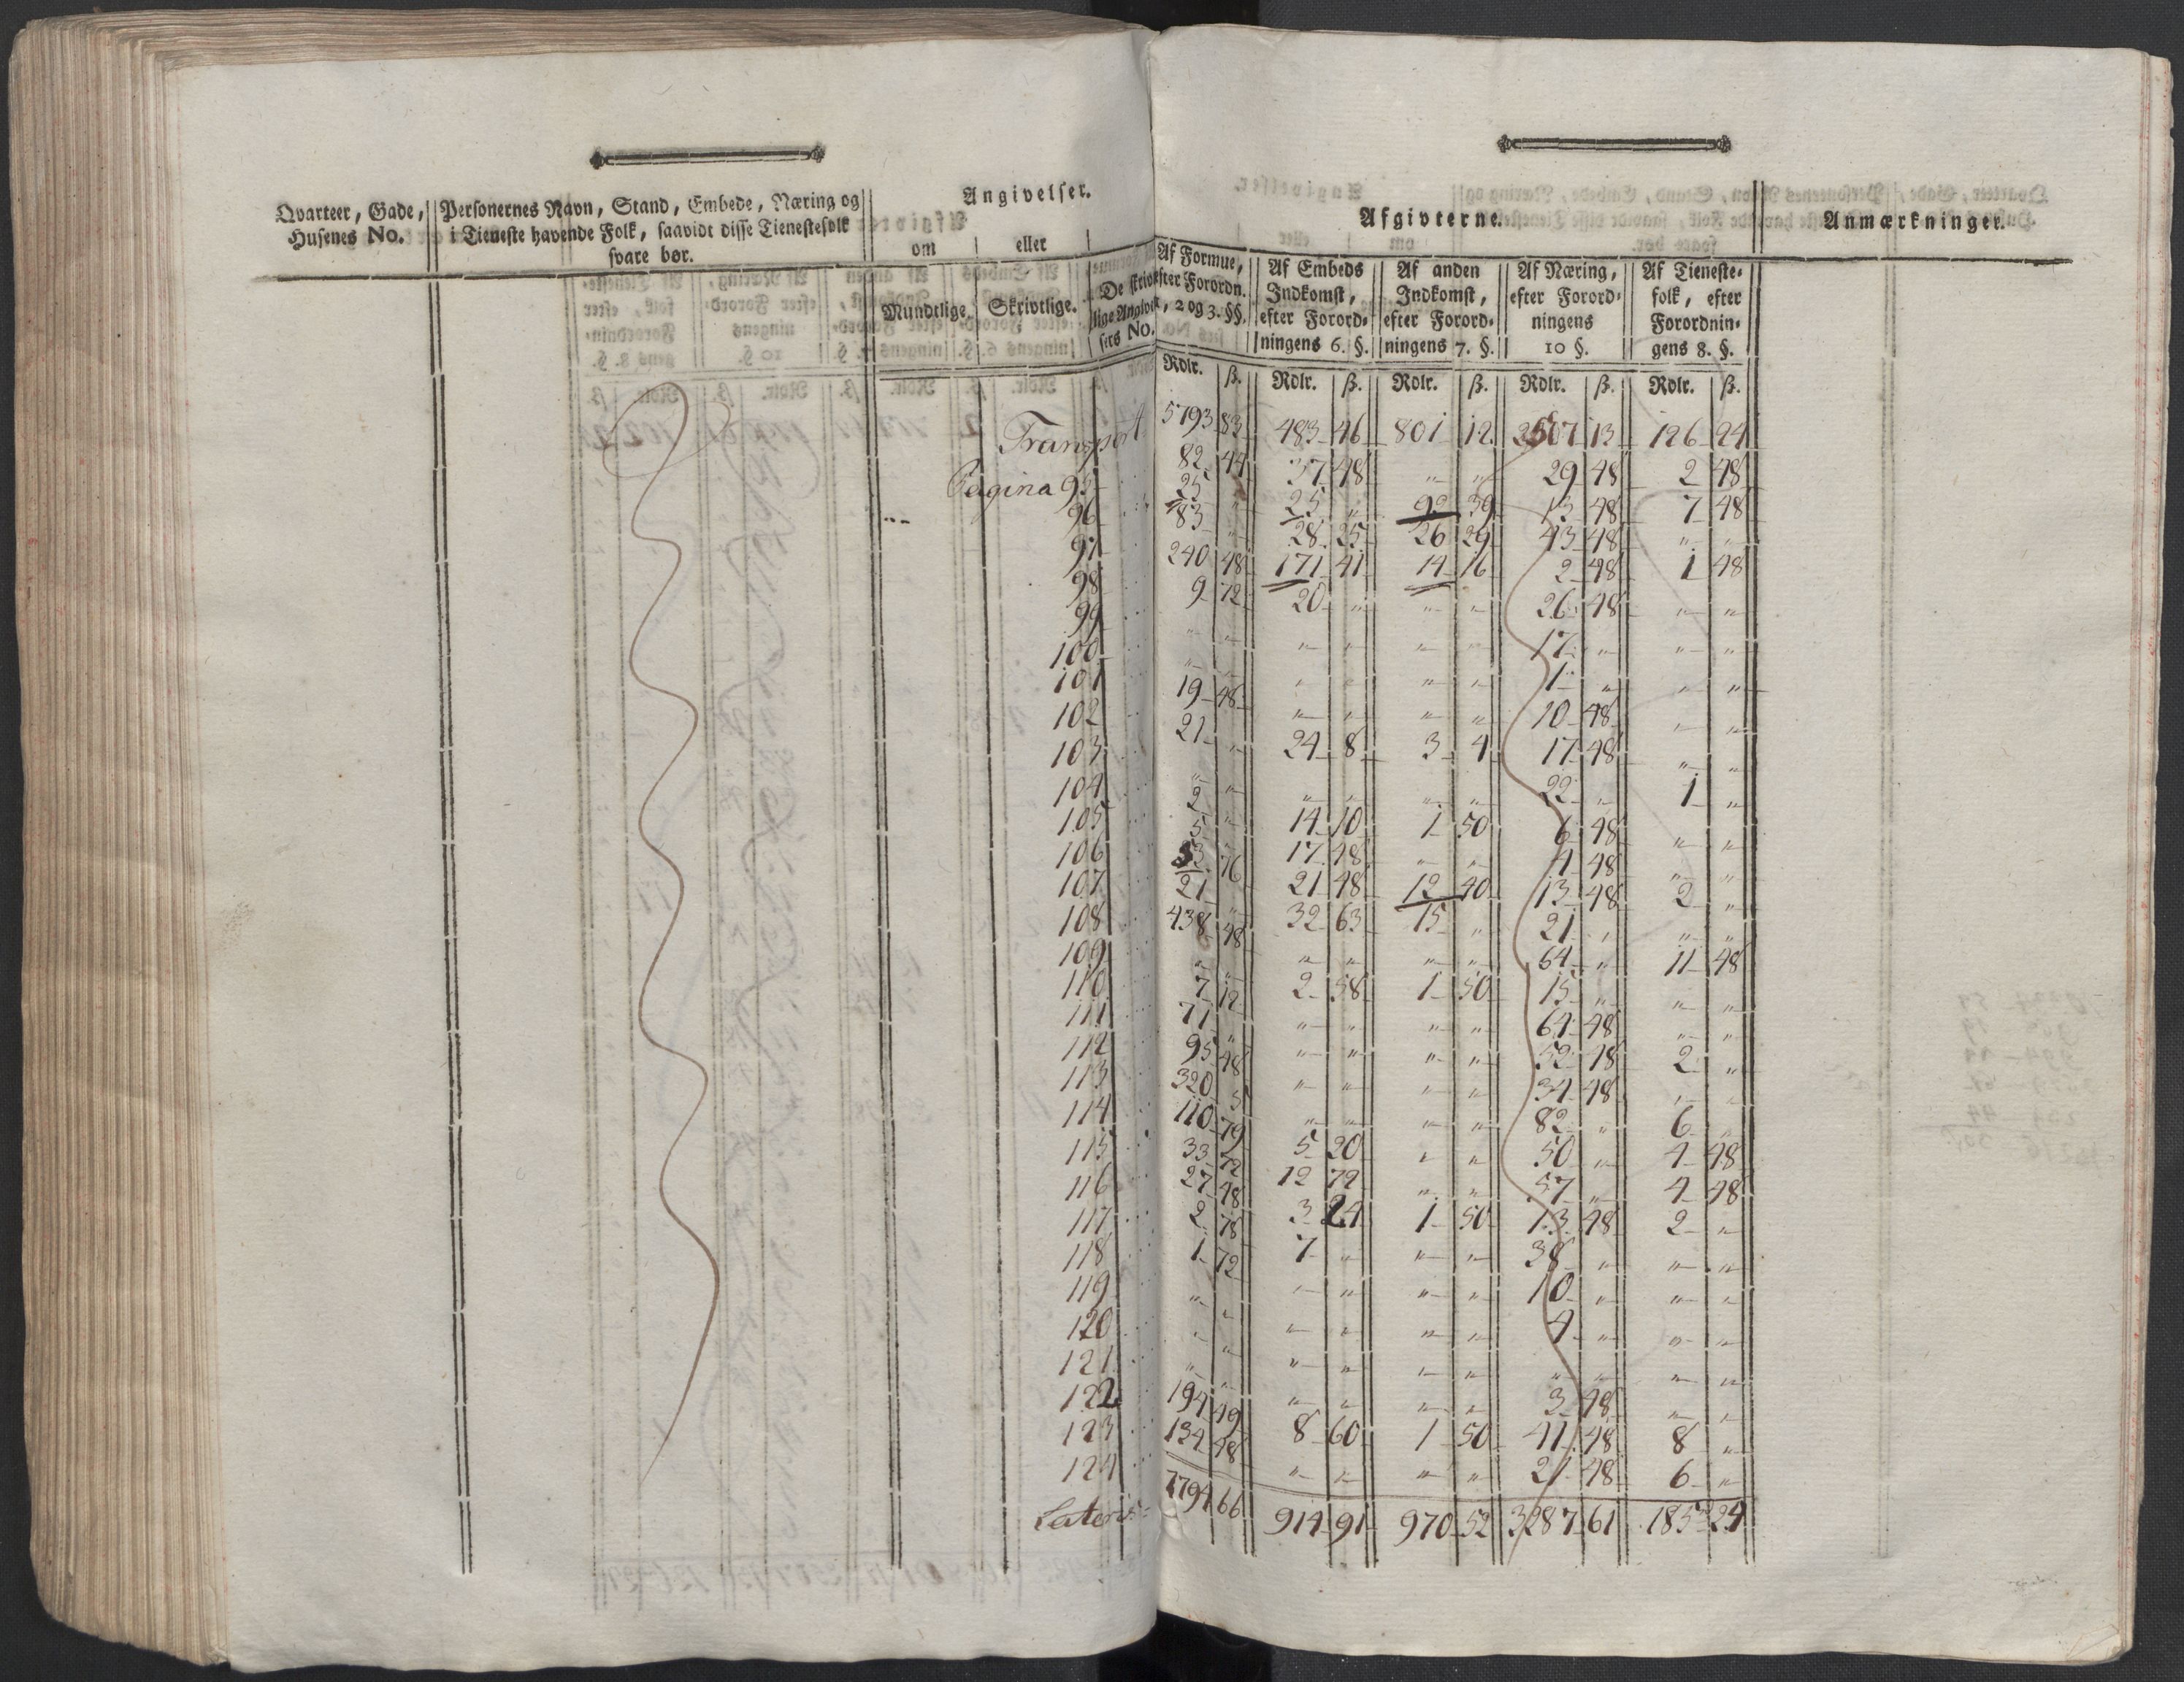 Qvarteer, Gade, Husenes No. | Personernes Navn, Stand, Embede, Næring og i Tieneste havende Folk, saavidt disse Tienestefolk svare bør. | Angivelser. om | eller | Mundtlige. | Skrivtlige. | De skrivtlige Angivelsers No.
Afgivterne. | Anmærkninger.
Af Formue, efter Forordn. 1, 2 og 3. §§. | Af Embeds Indkomst, efter Forordningens 6. §. | Af anden Indkomst, efter Forordningens 7. §. | Af Næring, efter Forordningens 10 §. | Af Tienestefolk, efter Forordningens 8. §.
Rdlr. | ß. | Rdlr. | ß. | Rdlr. | ß. | Rdlr. | ß. | Rdlr. | ß.
Transport 5793 83 | 483 46 | 801 12 | 2507 13 | 126 24
Pagina 95 82 44 | 37 48 | " " | 29 48 | 2 48
96 25 " | 25 " | 92 39 | 13 48 | 7 48
97 83 " | 28 25 | 26 29 | 43 48 | " "
98 240 48 | 171 41 | 14 16 | 2 48 | 1 48
99 9 72 | 20 " | " " | 26 48 | " "
100 " " | " " | " " | 17 " | " "
101 " " | " " | " " | 1 " | " "
102 19 48 | " " | " " | 10 48 | " "
103 21 " | 24 8 | 3 4 | 17 48 | " "
104 " " | " " | " " | 22 " | 1 "
105 2 " | 14 10 | 1 50 | 6 48 | " "
106 5 " | 17 48 | " " | 4 48 | " "
107 53 76 | 21 48 | 12 40 | 13 48 | 2 "
108 21 " | 32 63 | 15 " | 21 " | " "
109 438 48 | " " | " " | 64 " | 11 48
110 " " | 2 58 | 1 50 | 15 " | " "
111 7 12 | " " | " " | 64 48 | " "
112 71 " | " " | " " | 52 48 | 2 "
113 95 48 | " " | " " | 34 48 | " "
114 320 5 | " " | " " | 82 " | 6 "
115 110 79 | 5 20 | " " | 50 " | 4 48
116 33 72 | 12 72 | " " | 57 " | 4 48
117 27 48 | 3 24 | 1 50 | 13 48 | 2 "
118 2 78 | 7 " | " " | 38 " | " "
119 1 72 | " " | " " | 10 " | " "
120 " " | " " | " " | 4 " | " "
121 " " | " " | " " | " " | " "
122 " " | " " | " " | 3 48 | " "
123 194 49 | 8 60 | 1 50 | 41 48 | 8 "
124 134 48 | " " | " " | 21 48 | 6 "
Lateris 7794 66 | 914 91 | 970 52 | 3287 61 | 185 24